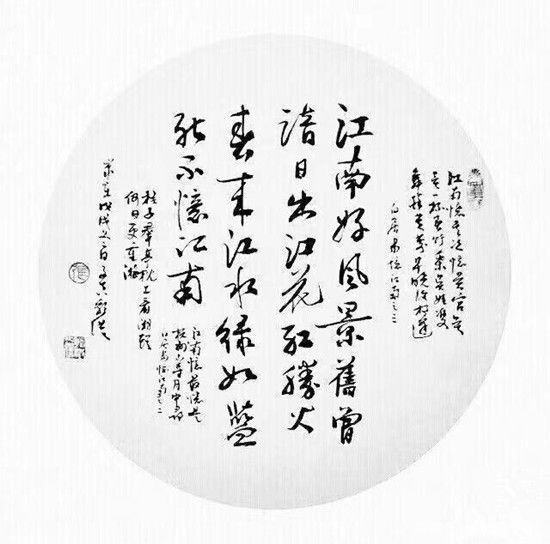 江南憶其次憶吴宫吴
酒一杯春竹葉吴娃雙
舞醉芙蓉早晚復相逢
白居易憶江南之三
江南好风景舊曾
諳日出江花红勝火
春来江水绿如藍
能不憶江南
江南憶最憶是
杭州山寺月中尋
白居易憶江南之二
桂子郡亭枕上看潮頭
何日更重游
戊戌